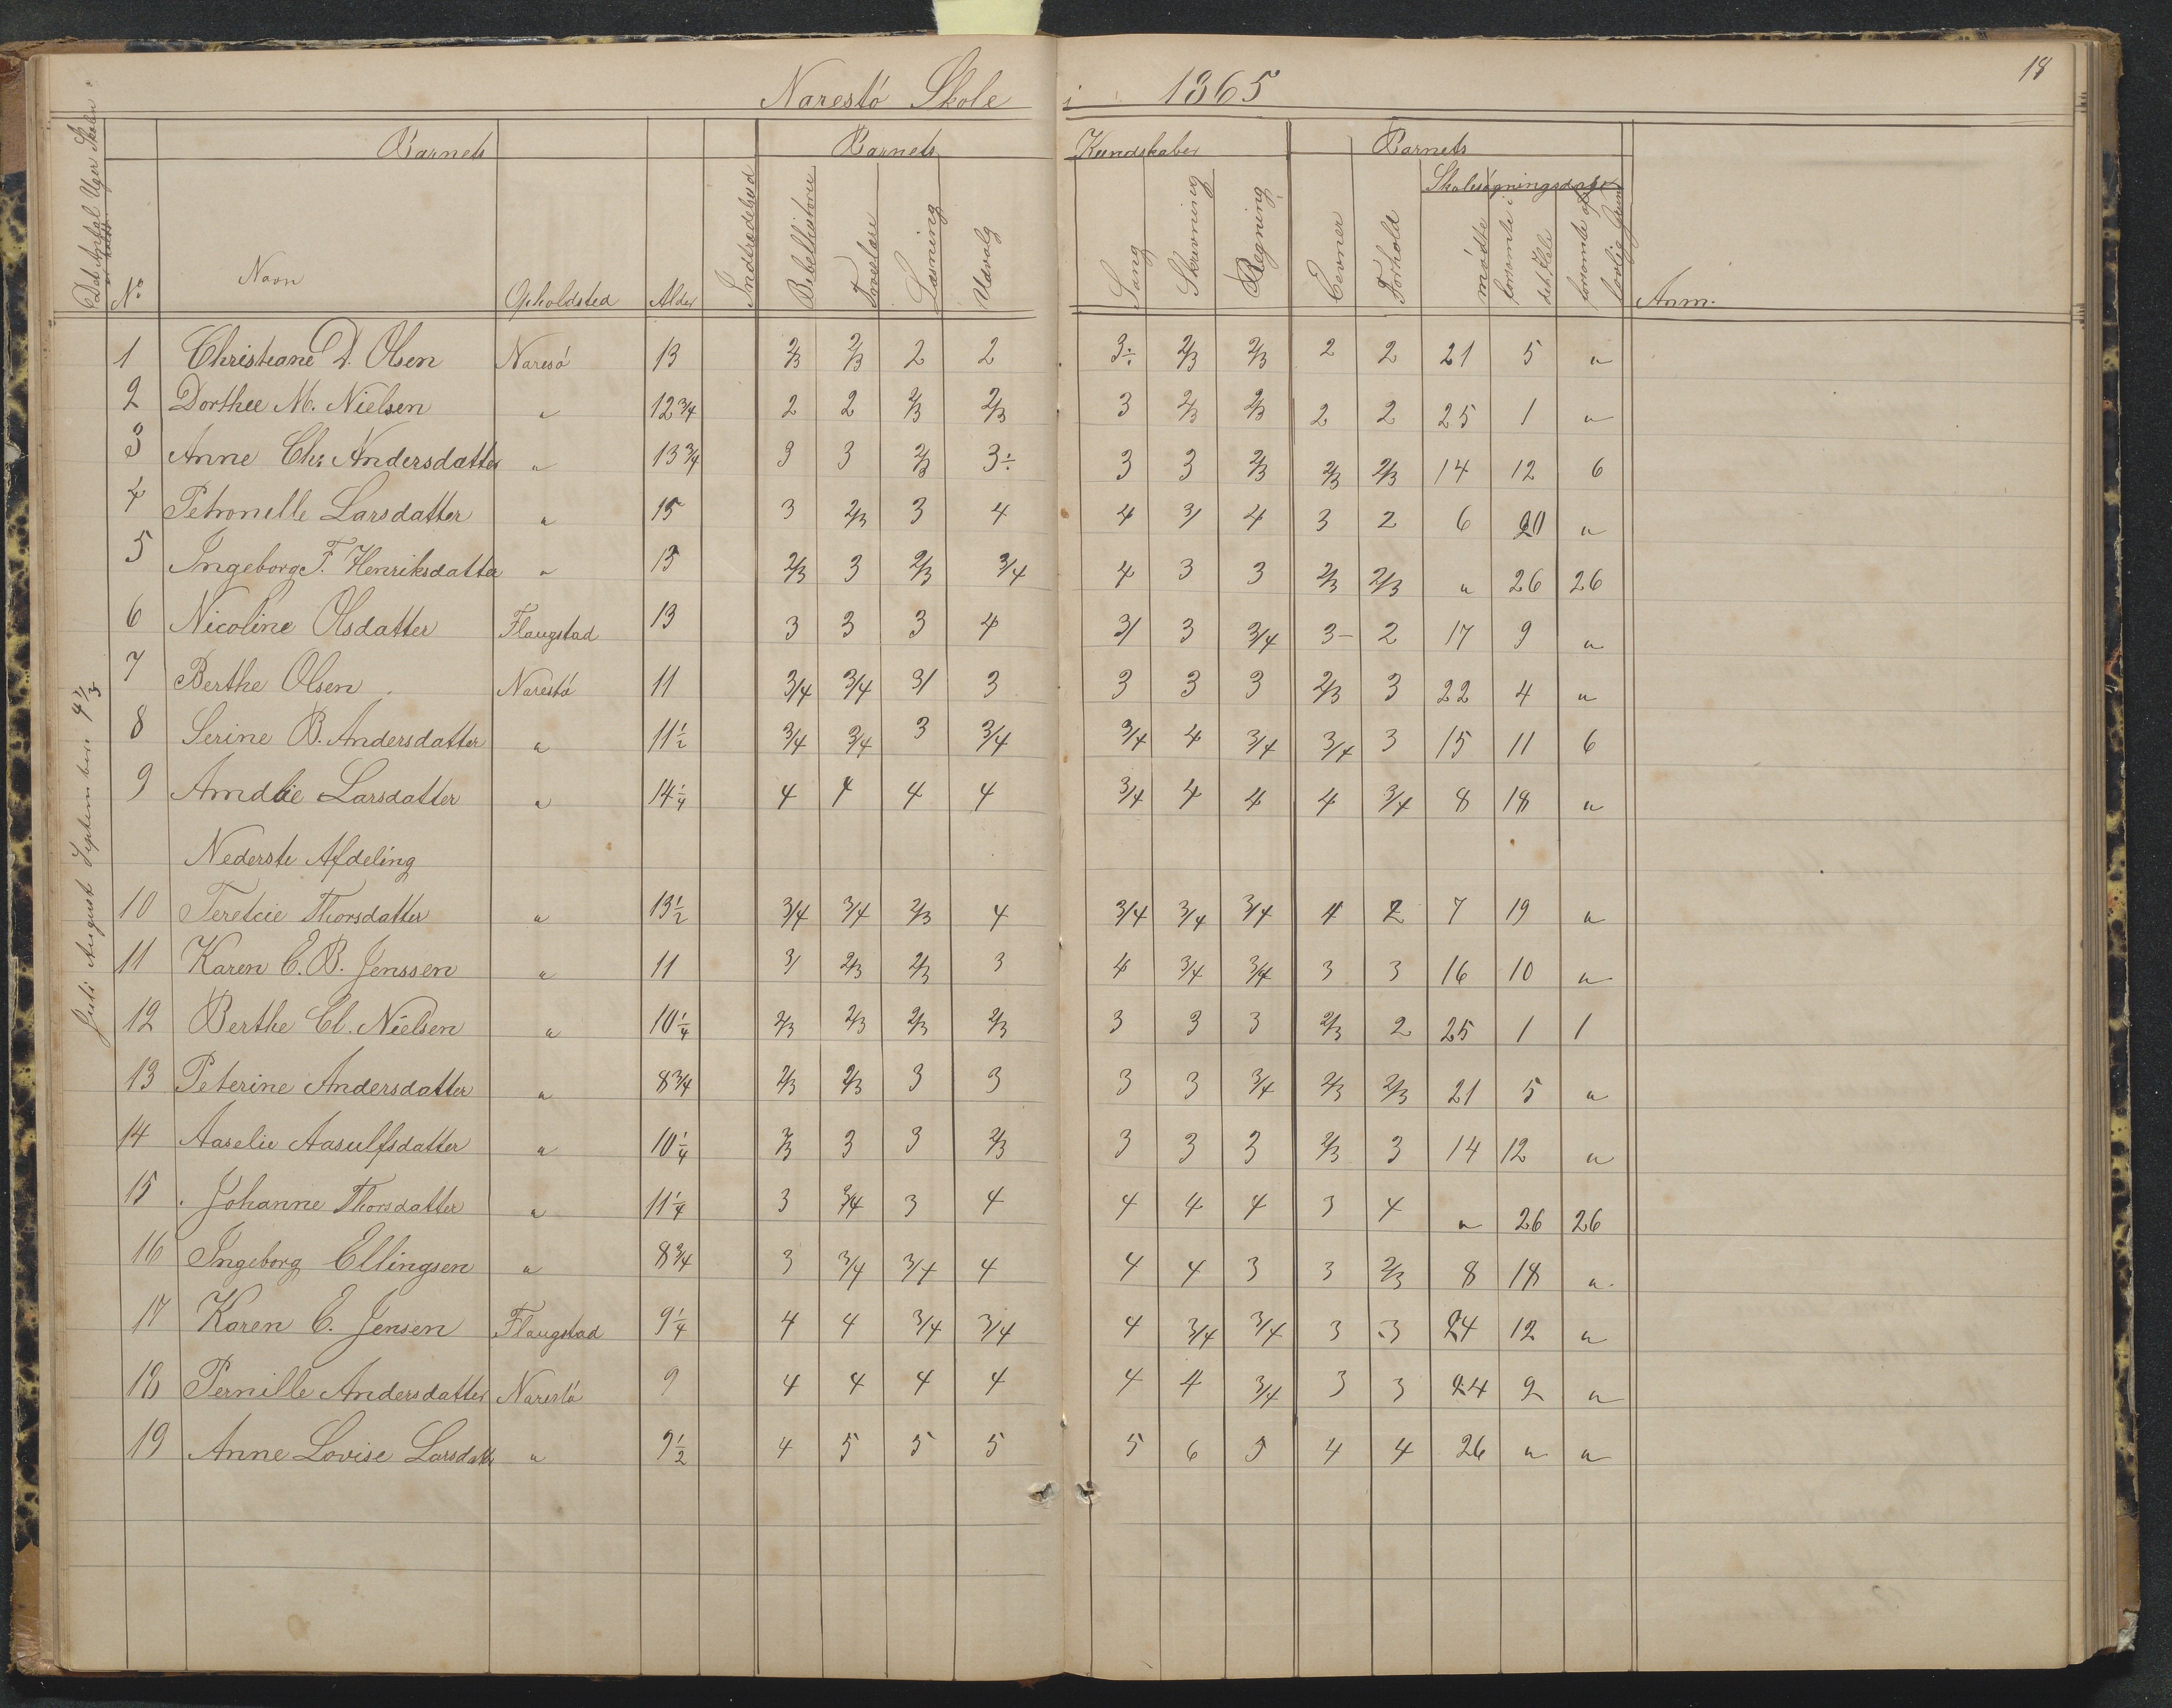 18
Narestö Skole i 1865
Det Antal Uger Skolen er holdt
Barnets
Barnets Kundskaber
Barnets
Skolesøgningsdage
No Navn Opholdsted Alder Indtrædelsed Bibelhistorie Troeslære Læsning Udvalg Sang Skrivning Regning Evner Forhold mødte forsømte i det Hele forsømte af lovlig Grund Anm.
Juli August September 4 1/3
1 Christiane D. Olsen Naresö 13 2/3 2/3 2 2 3÷ 2/3 2/3 2 2 21 5 "
2 Dorthee M. Nielsen " 12 3/4 2 2 2/3 2/3 3 2/3 2/3 2 2 25 1 "
3 Anne Chr. Andersdatter " 13 3/4 3 3 2/3 3÷ 3 3 2/3 2/3 2/3 14 12 6
4 Petronelle Larsdatter " 15 3 2/3 3 4 4 3/ 4 3 2 6 20 "
5 Ingeborg F. Henriksdatter " 15 2/3 3 2/3 3/4 4 3 3 2/3 2/3 " 26 26
6 Nicoline Olsdatter Flaugstad 13 3 3 3 4 3/ 3 3/4 3- 2 17 9 "
7 Berthe Olsen Narestö 11 3/4 3/4 3/ 3 3 3 3 2/3 3 22 4 "
8 Serine B. Andersdatter " 11 1/2 3/4 3/4 3 3/4 3/4 4 3/4 3/4 3 15 11 6
9 Amalie Larsdatter " 14 1/4 4 4 4 4 3/4 4 4 4 3/4 8 18 "
Nederste Afdeling
10 Teretcie Thorsdatter " 13 1/2 3/4 3/4 2/3 4 3/4 3/4 3/4 4 2 7 19 "
11 Karen C. B. Jenssen " 11 3/ 2/3 2/3 3 4 3/4 3/4 3 3 16 10 "
12 Berthe Cl. Nielsen " 10 1/4 2/3 2/3 2/3 2/3 3 3 3 2/3 2 25 1 1
13 Peterine Andersdatter " 8 3/4 2/3 2/3 3 3 3 3 3/4 2/3 2/3 21 5 "
14 Aaselie Aasulfsdatter " 10 1/4 2/3 3 3 2/3 3 3 3 2/3 3 14 12 "
15 Johanne Thorsdatter " 11 1/4 3 3/4 3 4 4 4 4 3 4 " 26 26
16 Ingeborg Ellingsen " 8 3/4 3 3/4 3/4 4 4 4 3 3 2/3 8 18 "
17 Karen C. Jensen Flaugstad 9 1/4 4 4 3/4 3/4 4 3/4 3/4 3 3 24 12 "
18 Pernille Andersdatter Narestö 9 4 4 4 4 4 4 3/4 3 3 24 2 "
19 Anne Lovise Larsdatter " 9 1/2 4 5 5 5 5 6 5 4 4 26 " "